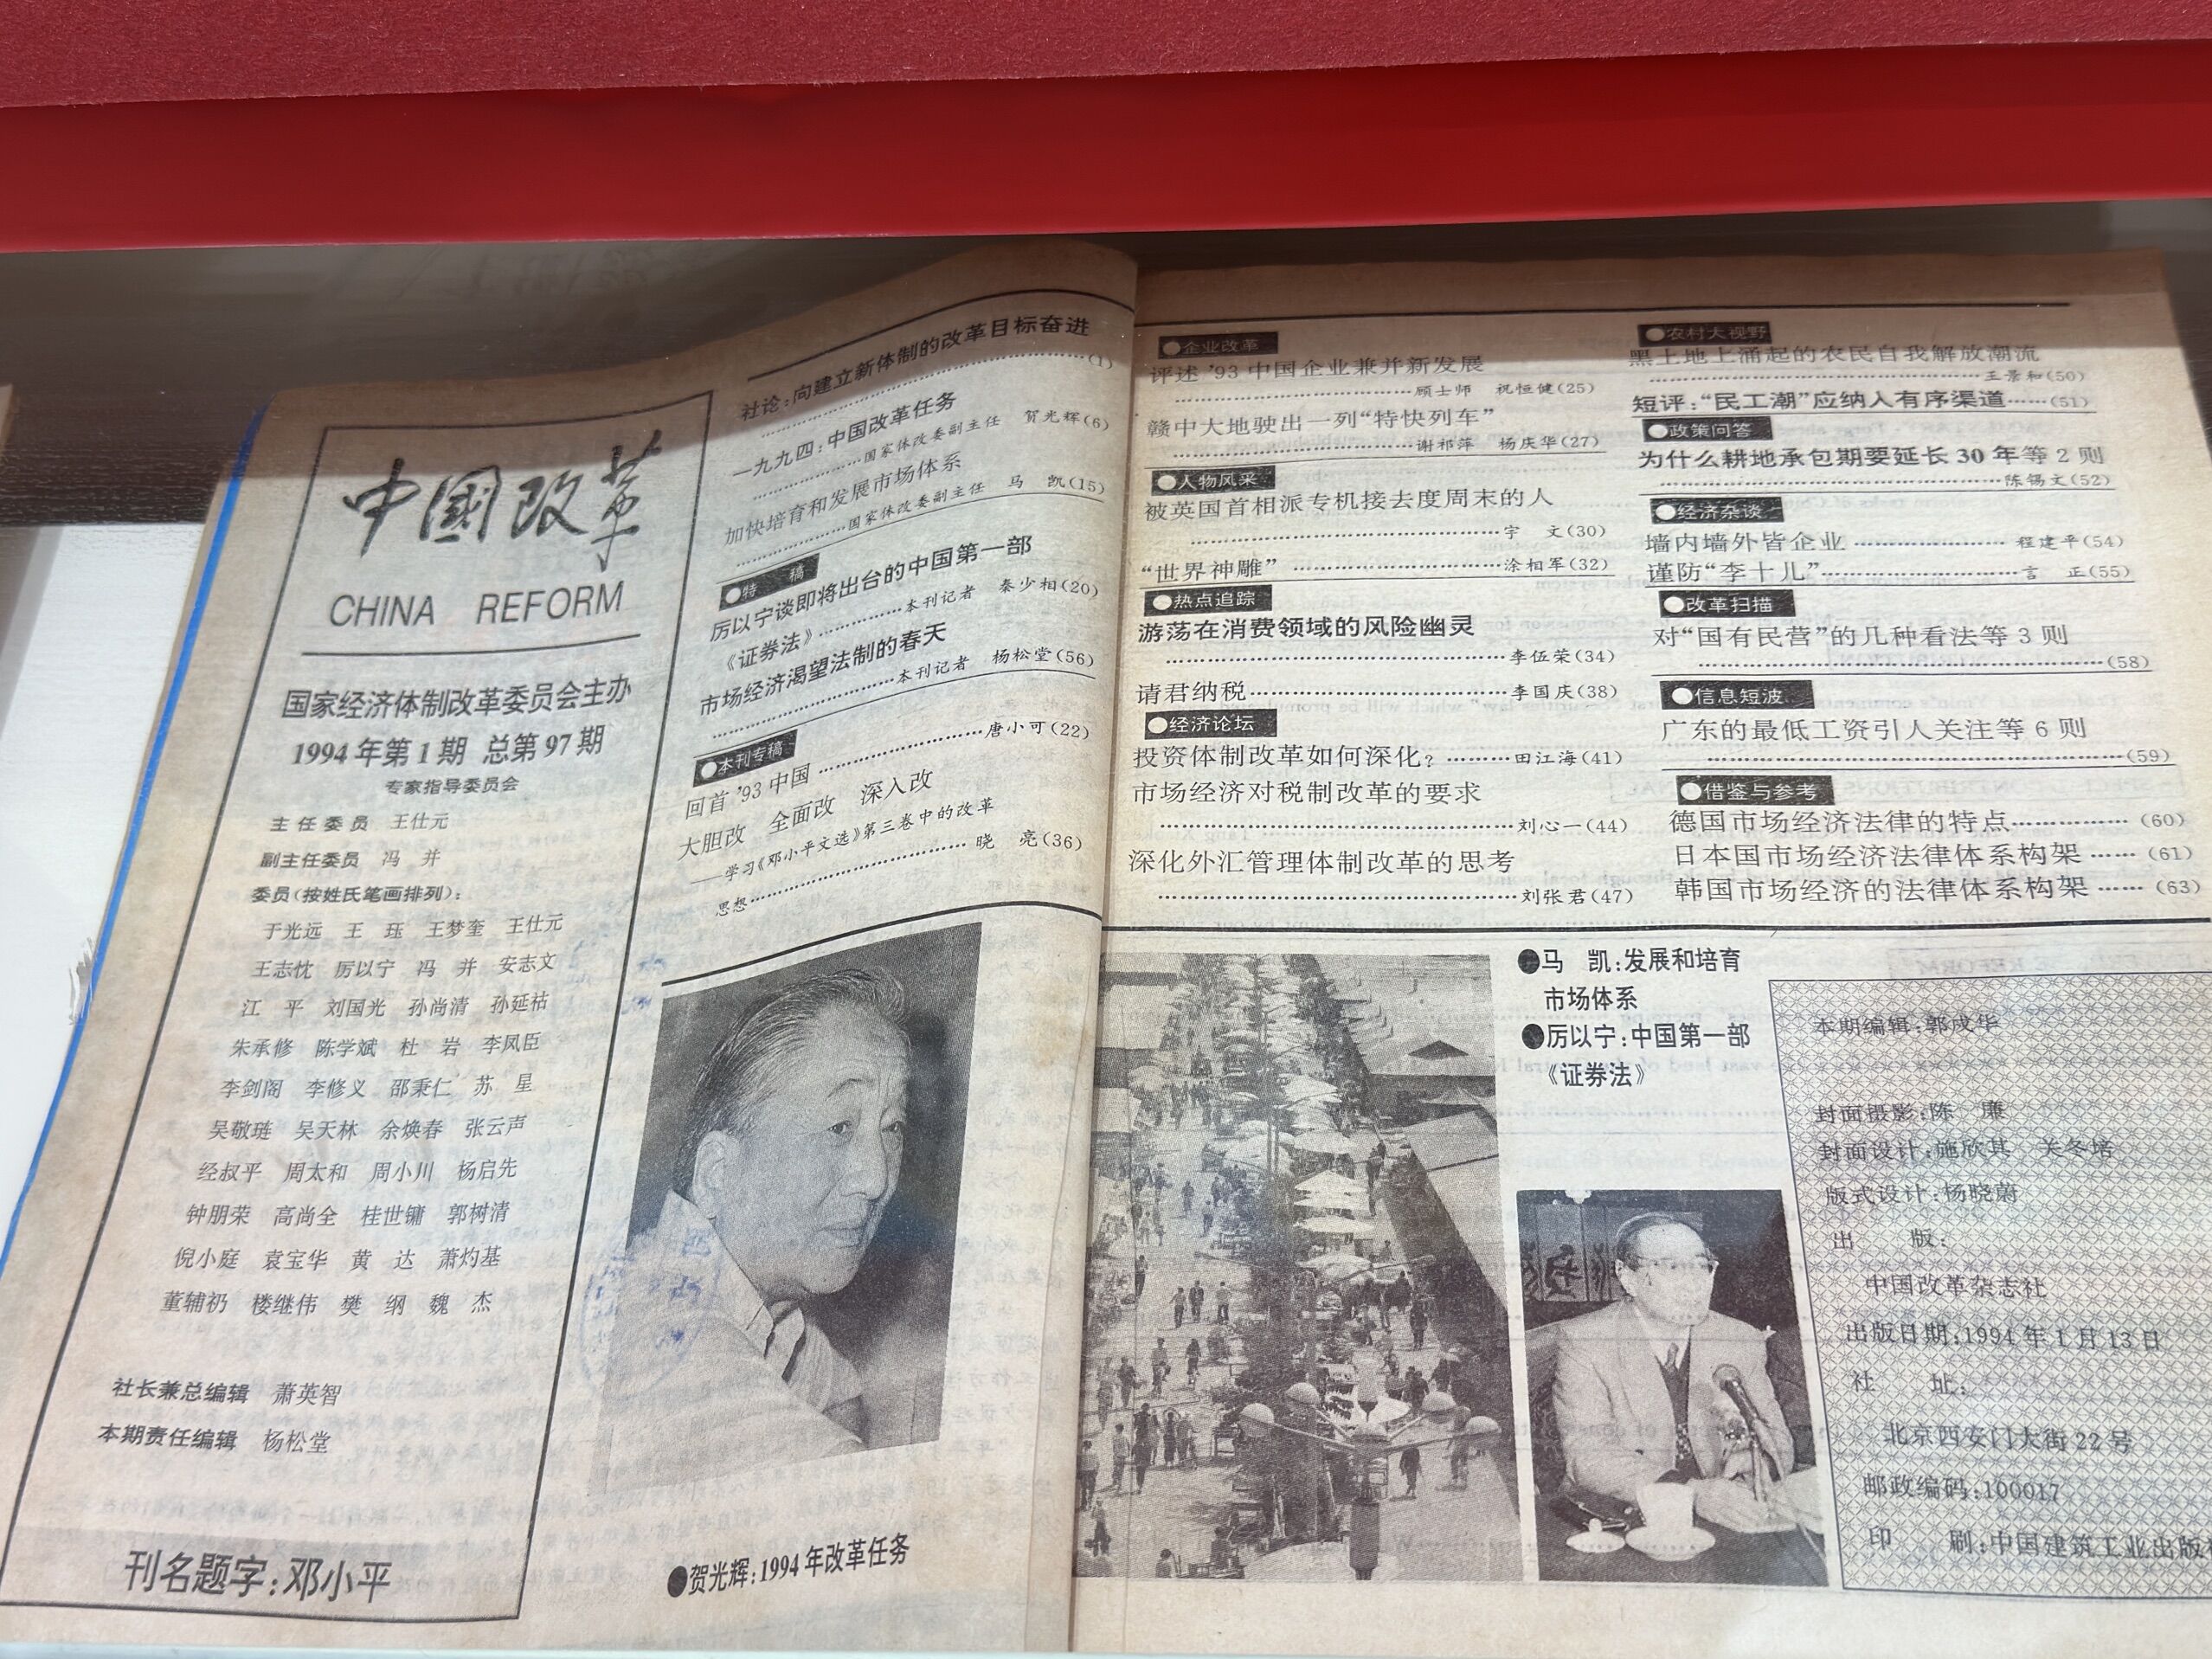 中國改革
CHINA REFORM
国家经济体制改革委员会主办
1994年第1期 总第97期
专家指导委员会
主任委员 王仕元
副主任委员 冯 并
委员(按姓氏笔画排列):
于光远 王 珏 王梦奎 王仕元
王志忱 厉以宁 冯 并 安志文
江 平 刘国光 孙尚清 孙延祜
朱承修 陈学斌 杜 岩 李凤臣
李剑阁 李修义 邵秉仁 苏 星
吴敬琏 吴天林 余焕春 张云声
经叔平 周太和 周小川 杨启先
钟朋荣 高尚全 桂世镛 郭树清
倪小庭 袁宝华 黄 达 萧灼基
董辅礽 楼继伟 樊 纲 魏 杰
社长兼总编辑 萧英智
本期责任编辑 杨松堂
刊名题字:邓小平
社论:向建立新体制的改革目标奋进
……(1)
一九九四:中国改革任务
……国家体改委副主任 贺光辉(6)
加快培育和发展市场体系
……国家体改委副主任 马 凯(15)
●特 稿
厉以宁谈即将出台的中国第一部
《证券法》……本刊记者 秦少相(20)
市场经济渴望法制的春天
……本刊记者 杨松堂(56)
●本刊专稿
回首'93中国……唐小可(22)
大胆改 全面改 深入改
——学习《邓小平文选》第三卷中的改革
思想……晓 亮(36)
●贺光辉:1994年改革任务
●企业改革
评述'93中国企业兼并新发展
……顾士师 祝恒健(25)
赣中大地驶出一列“特快列车”
……谢祁萍 杨庆华(27)
●人物风采
被英国首相派专机接去度周末的人
……宇 文(30)
“世界神雕”……涂相军(32)
●热点追踪
游荡在消费领域的风险幽灵
……李伍荣(34)
请君纳税……李国庆(38)
●经济论坛
投资体制改革如何深化?……田江海(41)
市场经济对税制改革的要求
……刘心一(44)
深化外汇管理体制改革的思考
……刘张君(47)
●农村大视野
黑土地上涌起的农民自我解放潮流
……王景和(50)
短评:“民工潮”应纳入有序渠道……(51)
●政策问答
为什么耕地承包期要延长30年等2则
……陈锡文(52)
●经济杂谈
墙内墙外皆企业……程建平(54)
谨防“李十儿”……言 正(55)
●改革扫描
对“国有民营”的几种看法等3则
……(58)
●信息短波
广东的最低工资引人关注等6则
……(59)
●借鉴与参考
德国市场经济法律的特点……(60)
日本国市场经济法律体系构架……(61)
韩国市场经济的法律体系构架……(63)
●马 凯:发展和培育
市场体系
●厉以宁:中国第一部
《证券法》
本期编辑:郭成华
封面摄影:陈 廉
封面设计:施欣其 关冬培
版式设计:杨晓蔚
出 版:
中国改革杂志社
出版日期:1994年1月13日
社 址:
北京西安门大街22号
邮政编码:100017
印 刷:中国建筑工业出版社